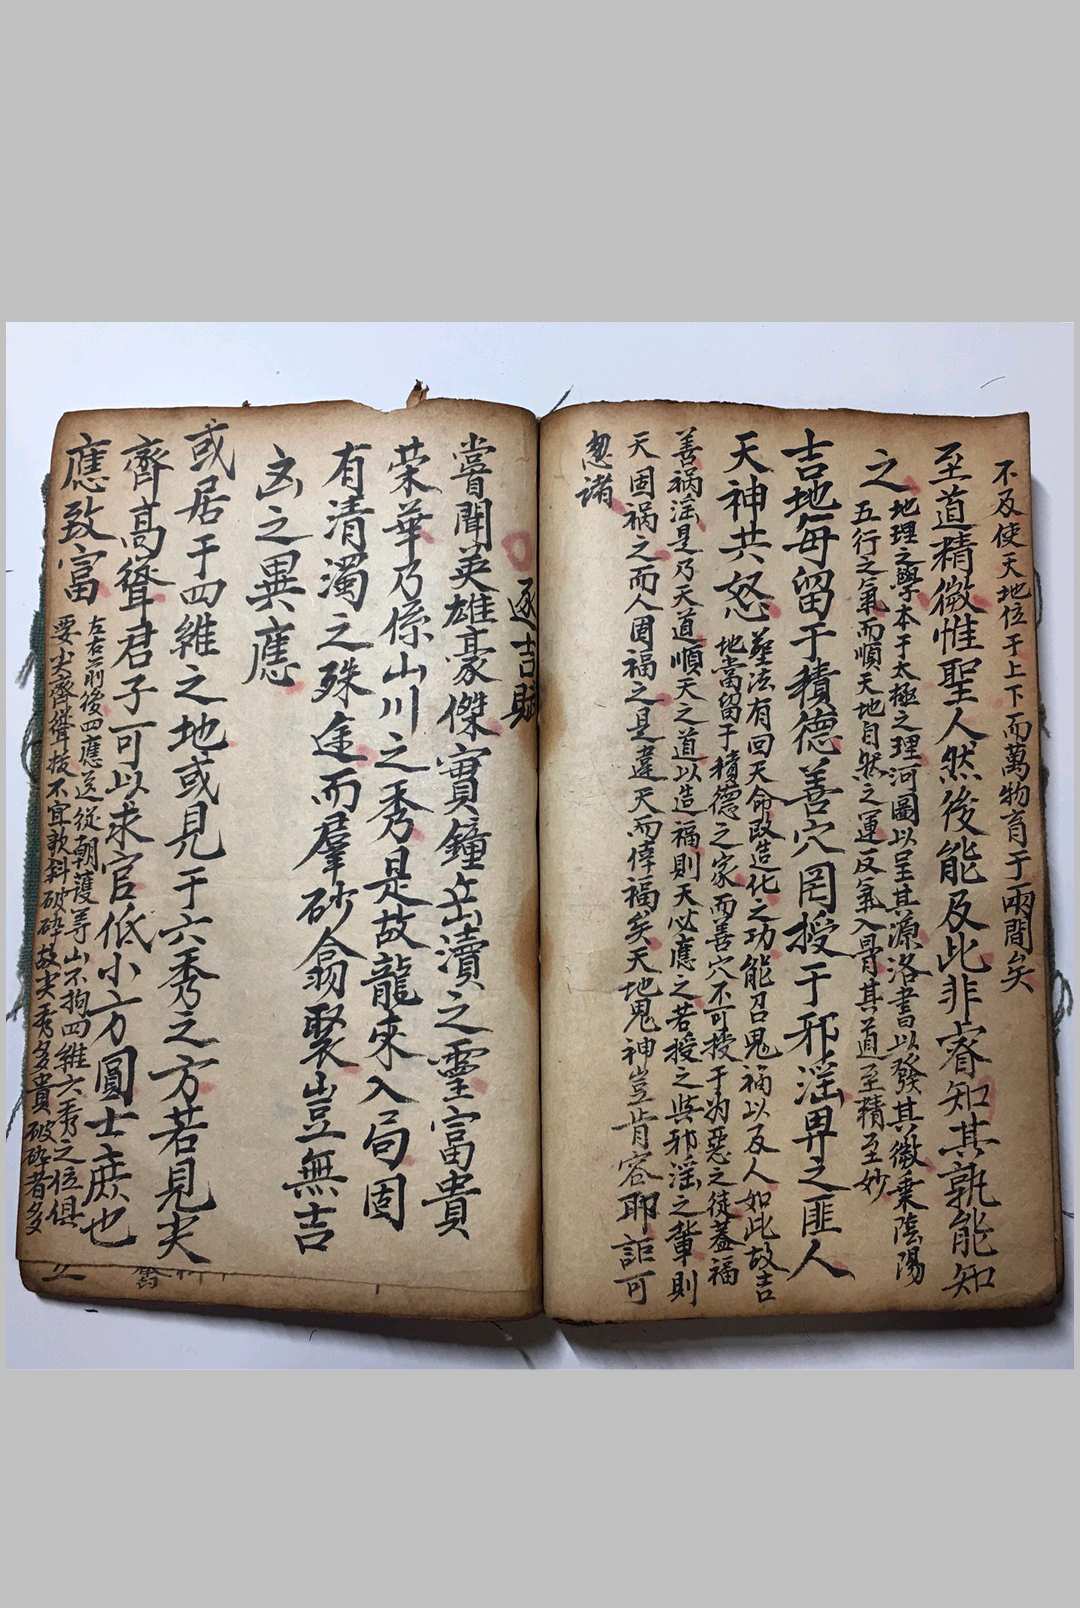 不及使天地位于上下而萬物育于兩間矣
至道精微惟聖人然後能及此非睿知其孰能知
之
地理之學本于太極之理河圖以呈其源洛書以發其微秉陰陽
五行之氣而順天地自然之運反氣入骨其道至精至妙
吉地每留于積德善穴罔授于邪淫畀之匪人
天神共怒
塟法有回天命改造化之功能召鬼福以及人如此故吉
地當留于積德之家而善穴不可授于为惡之徒蓋福
善祸淫是乃天道順天之道以造福則天必應之若授之与邪淫之輩則
天固祸之而人固福之是違天而倖福矣天地鬼神豈肯容耶詎可
忽諸
逐吉賦
嘗聞英雄豪傑實鐘岳瀆之靈富貴
荣華乃係山川之秀是故龍來入局固
有清濁之殊途而羣砂翕聚豈無吉
凶之異應
或居于四維之地或見于六秀之方若見尖
齊高聳君子可以求官低小方圓士庶也
應致富
左右前後四應送從朝護等山不拘四維六秀之位俱
要尖齊聳拔不宜欹斜破碎故尖秀多貴破碎者多